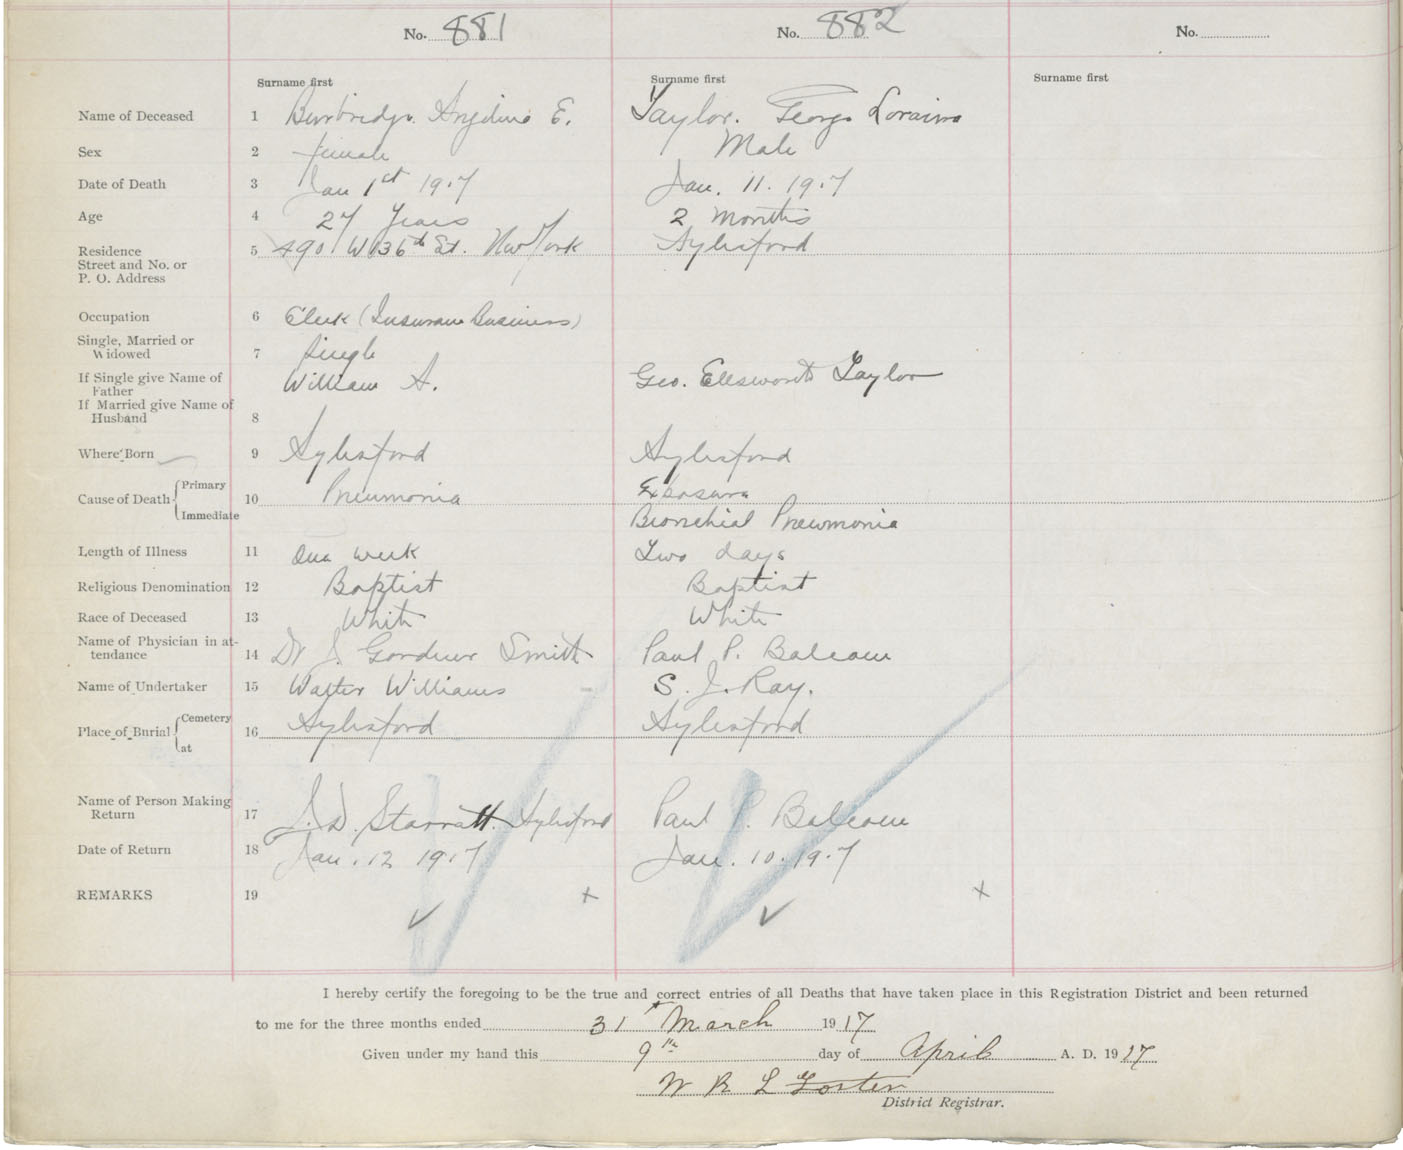 No. 881 No. 882 No.
Surname first Surname first Surname first
Name of Deceased 1 Burbridge. Angeline E. Taylor. George Loraine
Sex 2 female Male
Date of Death 3 Jan 1st 1917 Jan. 11. 1917
Age 4 27 Years 2 months
Residence 5 490 W 136th St. New York Aylesford
Street and No. or
P. O. Address
Occupation 6 Clerk (Insurance Business)
Single, Married or
Widowed 7 Single
If Single give Name of
Father William A. Geo. Ellsworth Taylor
If Married give Name of
Husband 8
Where Born 9 Aylesford Aylesford
Cause of Death Primary 10 Pneumonia Exposure
Immediate Bronchial Pneumonia
Length of Illness 11 One week Two days
Religious Denomination 12 Baptist Baptist
Race of Deceased 13 White White
Name of Physician in at-
tendance 14 Dr J. Gardner Smith Paul P. Balcom
Name of Undertaker 15 Walter Williams S. J. Ray.
Place of Burial Cemetery 16 Aylesford Aylesford
at
Name of Person Making
Return 17 J. D. Starratt. Aylesford Paul P. Balcom
Date of Return 18 Jan. 12 1917 Jan. 10. 1917
REMARKS 19
I hereby certify the foregoing to be the true and correct entries of all Deaths that have taken place in this Registration District and been returned
to me for the three months ended 31st March 1917
Given under my hand this 9th day of April A. D. 1917
W R L Foster
District Registrar.